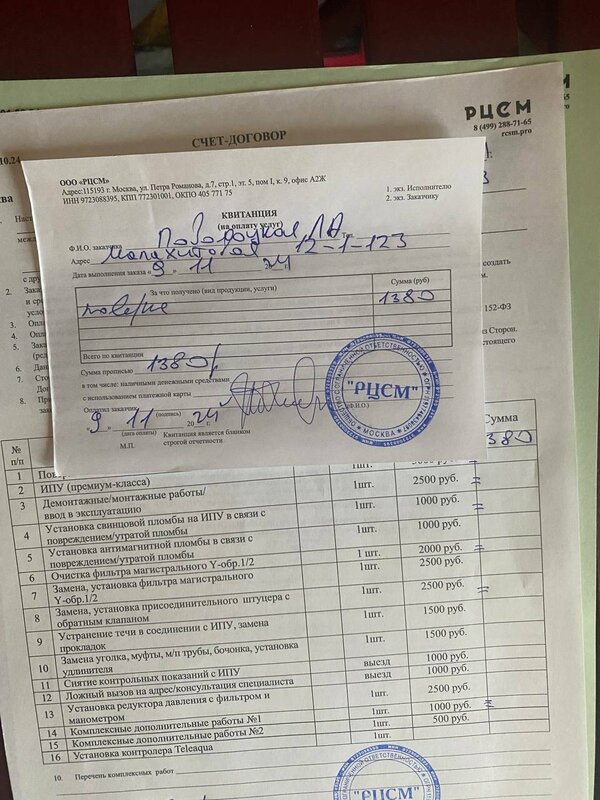 РЦСМ
8 (499) 288-71-65
rcsm.pro
СЧЕТ-ДОГОВОР
10.24
ООО «РЦСМ»
Адрес:115193 г. Москва, ул. Петра Романова, д.7, стр.1, эт. 5, пом I, к. 9, офис А2Ж
ИНН 9723088395, КПП 772301001, ОКПО 405 771 75
1. экз. Исполнителю
2. экз. Заказчику
КВИТАНЦИЯ
(на оплату услуг)
Ф.И.О. заказчика Тел.
Адрес Малахитовая 12-1-123
Дата выполнения заказа «9» 11 2024
За что получено (вид продукции, услуги) Сумма (руб)
1380
Всего по квитанции
Сумма прописью 1380р
в том числе: наличными денежными средствами
с использованием платежной карты
Оплатил заказчик (подпись) (Ф.И.О.)
«9» 11 2024 г.
(дата оплаты) Квитанция является бланком
М.П. строгой отчетности
ОБЩЕСТВО С ОГРАНИЧЕННОЙ ОТВЕТСТВЕННОСТЬЮ
"РЦСМ"
МОСКВА
152-ФЗ
Сторон.
№ п/п Сумма
1380
1 1шт.
2 ИПУ (премиум-класса) 1шт. 2500 руб.
3 Демонтажные/монтажные работы/ввод в эксплуатацию 1шт. 1000 руб.
4 Установка свинцовой пломбы на ИПУ в связи с повреждением/утратой пломбы 1шт. 1000 руб.
5 Установка антимагнитной пломбы в связи с повреждением/утратой пломбы 1 шт. 2000 руб.
6 Очистка фильтра магистрального Y-обр.1/2 1шт. 2500 руб.
7 Замена, установка фильтра магистрального Y-обр.1/2 1шт. 2500 руб.
8 Замена, установка присоединительного штуцера с обратным клапаном 1шт. 1500 руб.
9 Устранение течи в соединении с ИПУ, замена прокладок 1шт. 1500 руб.
10 Замена уголка, муфты, м/п трубы, бочонка, установка удлинителя выезд 1000 руб.
11 Снятие контрольных показаний с ИПУ выезд 1000 руб.
12 Ложный вызов на адрес/консультация специалиста 1шт. 2500 руб.
13 Установка редуктора давления с фильтром и манометром 1шт. 1000 руб.
14 Комплексные дополнительные работы №1 1шт. 500 руб.
15 Комплексные дополнительные работы №2 1шт.
16 Установка контролера Teleaqua
10. Перечень комплексных работ
"РЦСМ"